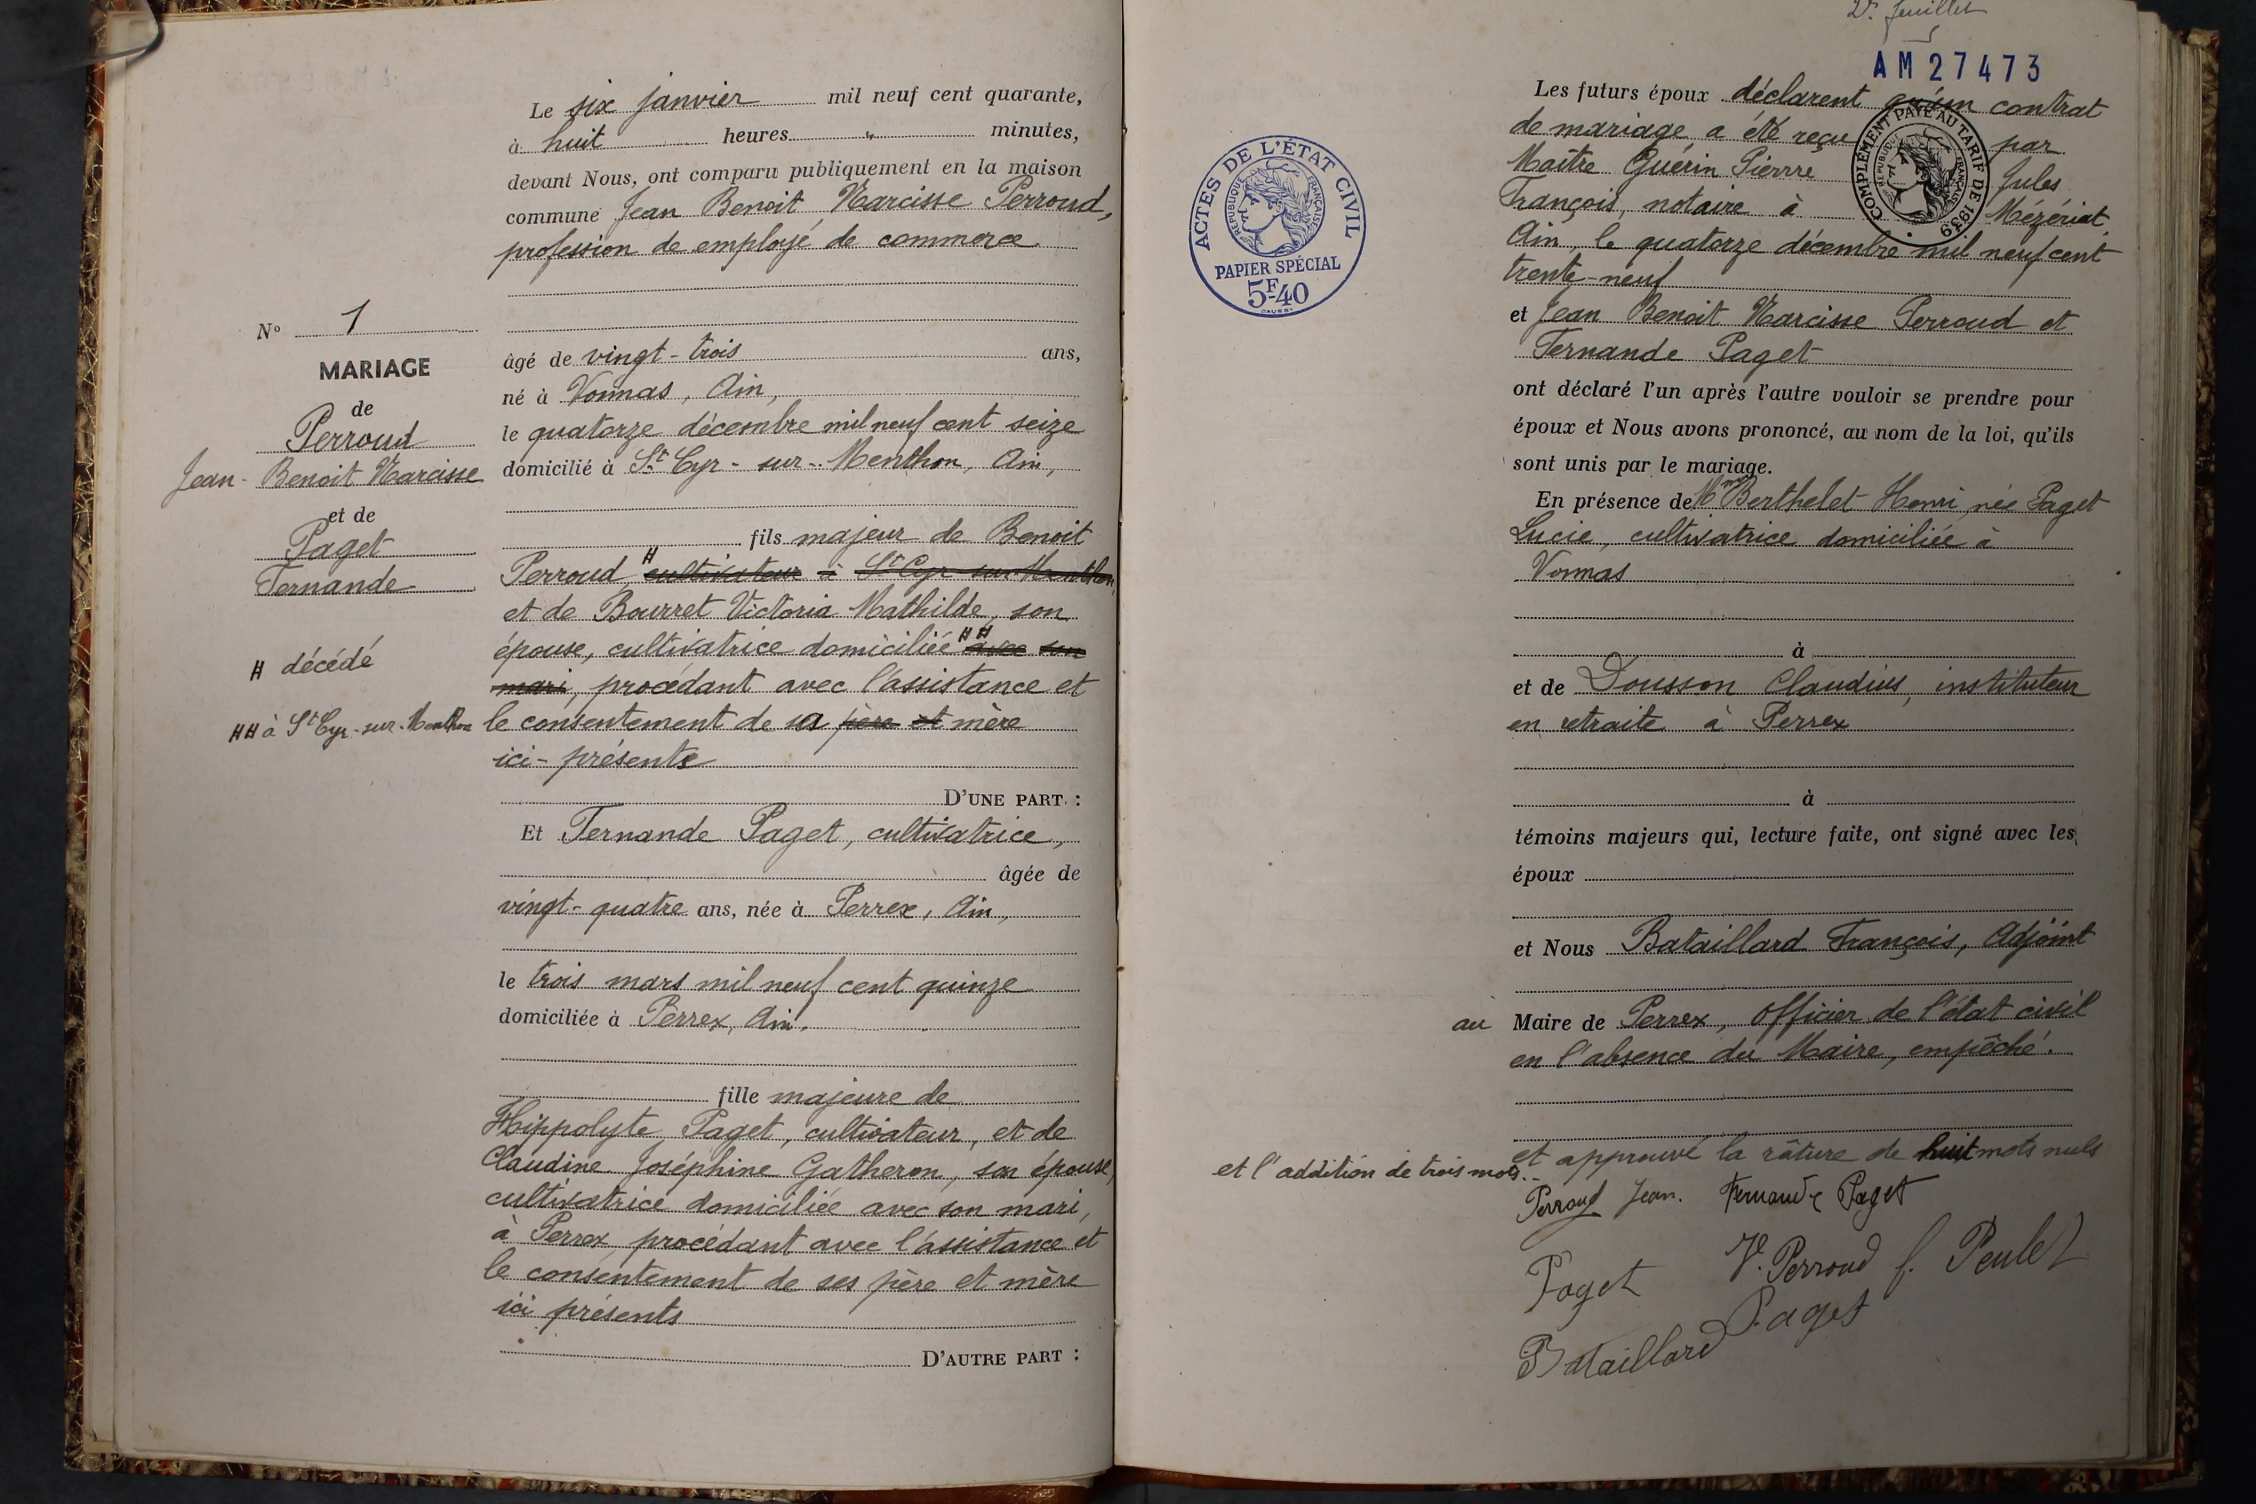 Le six janvier mil neuf cent quarante,
à huit heures " minutes,
devant Nous, ont comparu publiquement en la maison
commune Jean Benoit Narcisse Perroud,
profession de employé de commerce
N° 1
MARIAGE
de
Perroud
Jean-Benoit Narcisse
et de
Paget
Fernande
H décédé
HH à St Cyr-sur-Menthon
âgé de vingt-trois ans,
né à Vonnas, Ain,
le quatorze décembre mil neuf cent seize
domicilié à St Cyr-sur-Menthon, Ain,
fils majeur de Benoit
Perroud, H cultivateur à St Cyr sur Menthon,
et de Bourret Victoria Mathilde, son
épouse, cultivatrice domiciliée HH avec son
mari, procédant avec l'assistance et
le consentement de sa père et mère
ici-présente
D'UNE PART :
Et Fernande Paget, cultivatrice,
âgée de
vingt-quatre ans, née à Perrex, Ain,
le trois mars mil neuf cent quinze
domiciliée à Perrex, Ain.
fille majeure de
Hippolyte Paget, cultivateur, et de
Claudine Joséphine Gatheron, son épouse,
cultivatrice domiciliée avec son mari,
à Perrex, procédant avec l'assistance et
le consentement de ses père et mère
ici présents
D'AUTRE PART :
2e feuillet
AM27473
ACTES DE L'ÉTAT CIVIL
RÉPUBLIQUE FRANÇAISE
PAPIER SPÉCIAL
5F-40
COMPLÉMENT PAYÉ AU TARIF DE 1939
RÉPUBLIQUE FRANÇAISE
Les futurs époux déclarent qu'un contrat
de mariage a été reçu par
Maître Guérin Pierre Jules
François, notaire à Mézériat,
Ain, le quatorze décembre mil neuf cent
trente-neuf
et Jean Benoit Narcisse Perroud et
Fernande Paget
ont déclaré l'un après l'autre vouloir se prendre pour
époux et Nous avons prononcé, au nom de la loi, qu'ils
sont unis par le mariage.
En présence de Mme Berthelet Henri née Paget
Lucie, cultivatrice domiciliée à
Vonnas
à
et de Dousson Claudius, instituteur
en retraite à Perrex
à
témoins majeurs qui, lecture faite, ont signé avec les
époux
et Nous Bataillard François, Adjoint
au Maire de Perrex, officier de l'état civil
en l'absence du Maire, empêché.
et approuvé la râture de huit mots nuls
et l'addition de trois mots.
Perroud Jean. Fernande Paget
Paget V. Perroud f. Peulet
Bataillard Paget